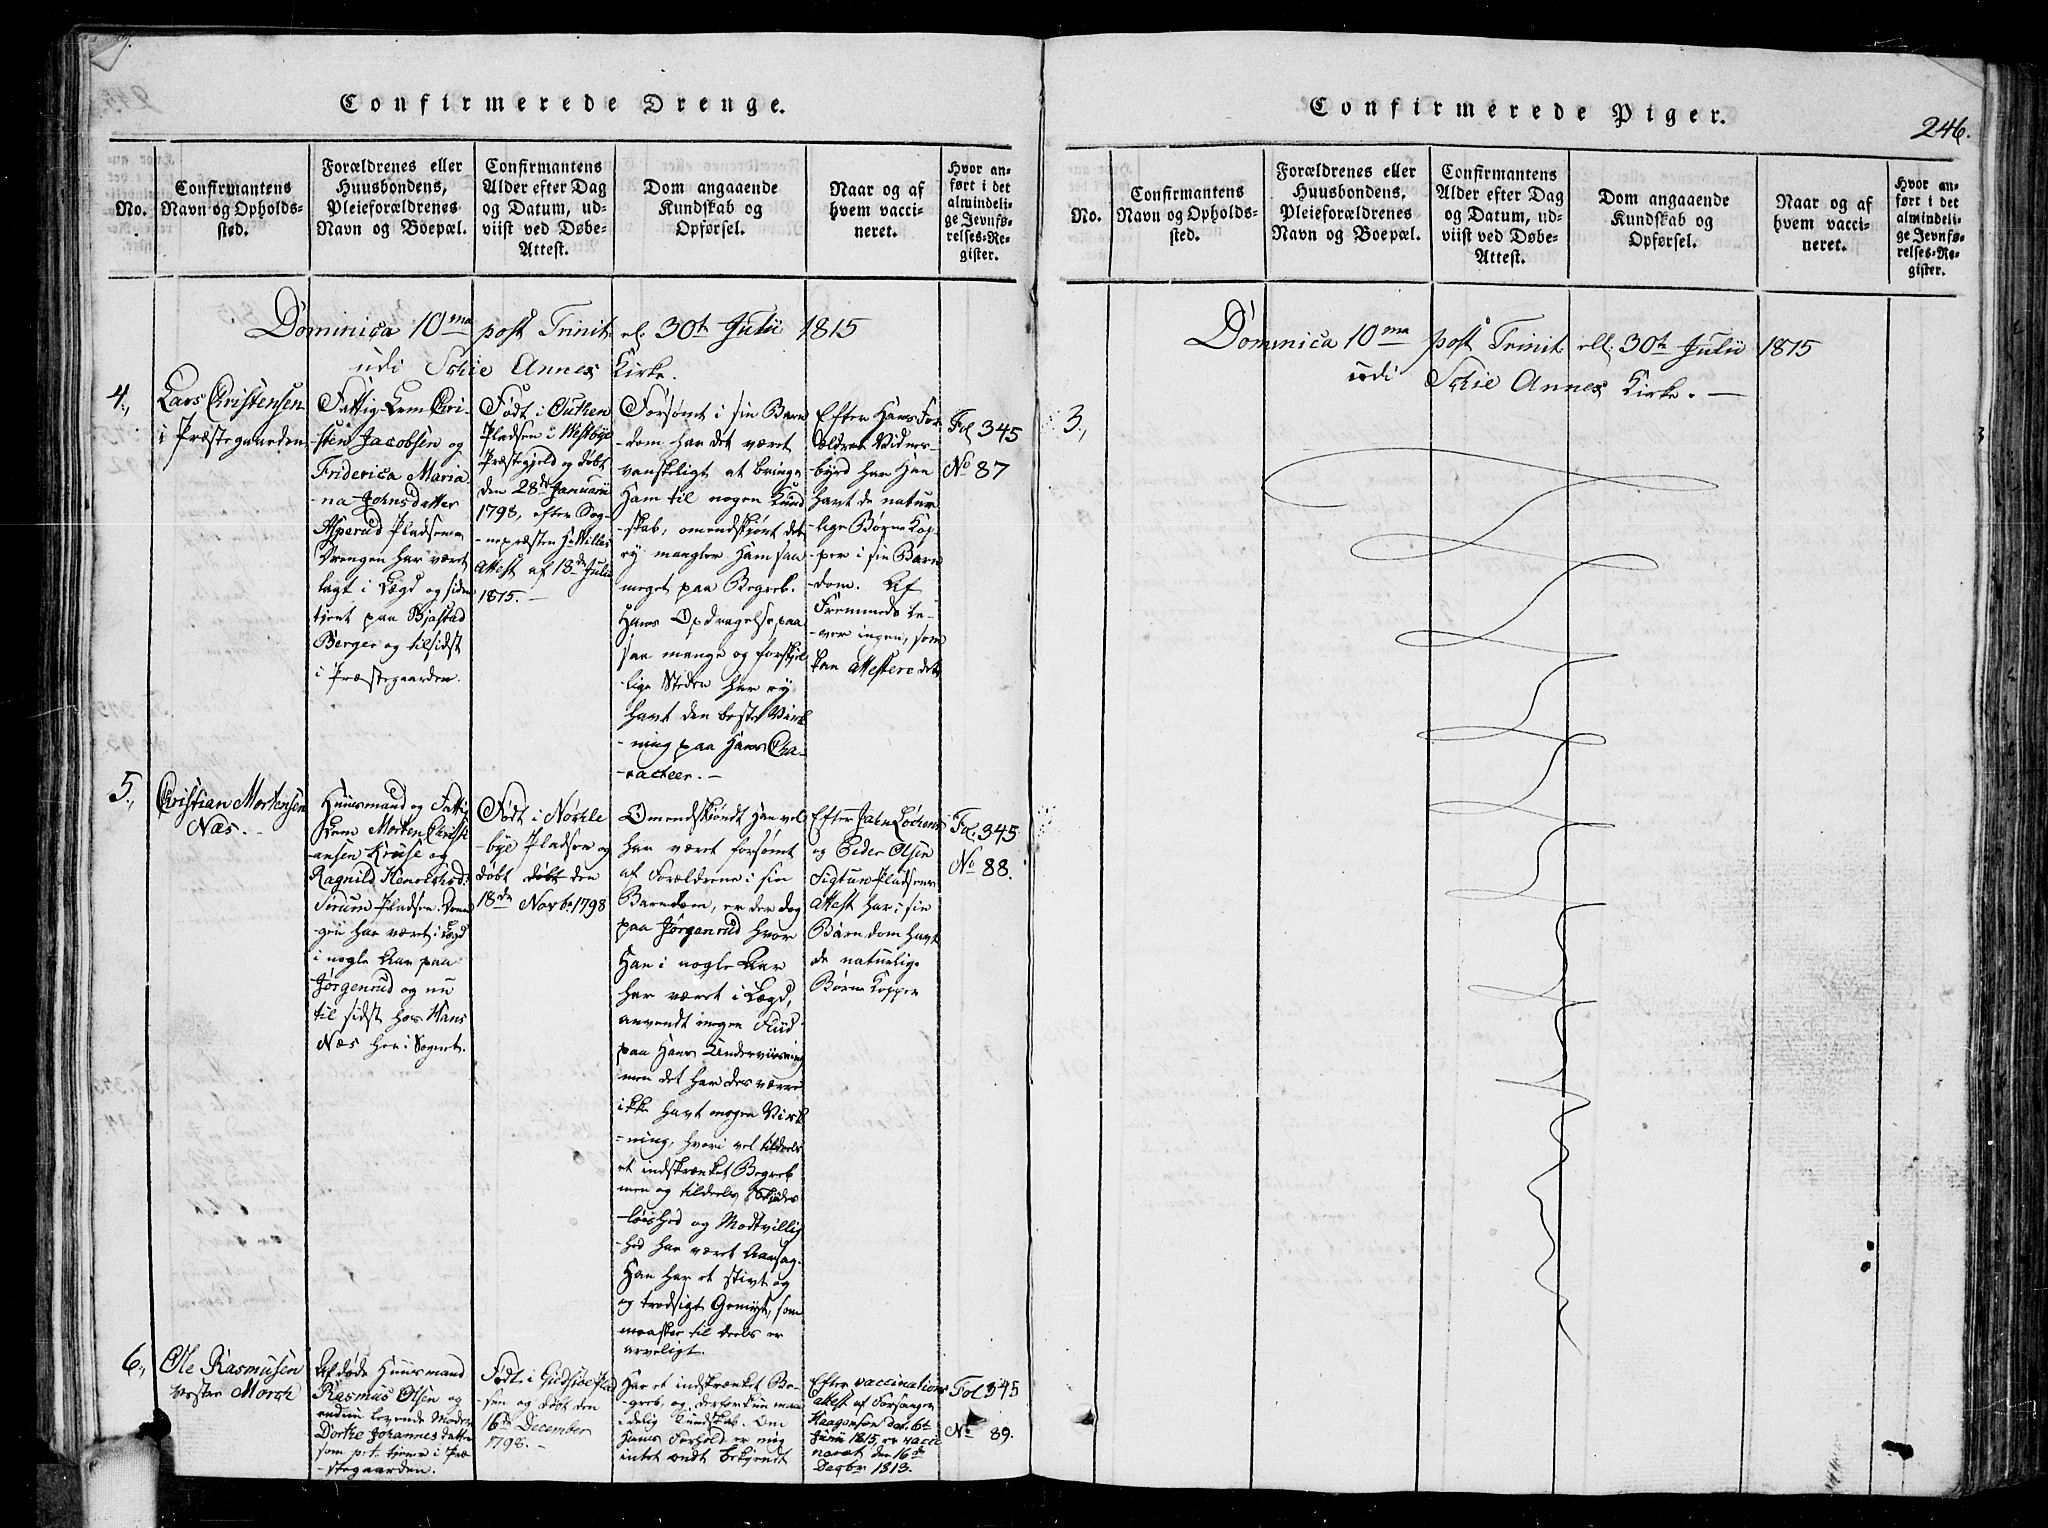 Confirmerede Drenge.
No.
Confirmantens
Navn og Opholds-
sted.
Forældrenes eller
Huusbondens,
Pleieforældrenes
Navn og Boepæl.
Confirmantens
Alder efter Dag
og Datum, ud-
viist ved Døbe-
Attest.
Dom angaaende
Kundskab og
Opførsel.
Naar og af
hvem vacci-
neret.
Hvor an-
ført i det
almindeli-
ge Jevnfø-
relses-Re-
gister.
Dominica 10ma post Trinit. el. 30te Julii 1815
udi Kirke.
4.,
Lars Christensen
i Præstegaarden
Fattig-Lem Chri-
sten Jacobsen og
Friderica Maria
-na Johnsdatter
Asperud Pladsen
Drengen har været
lagt i Lægd og siden
tjent paa Bjastad
Berger og tilsidst
i Præstegaarden.
Født i
Pladsen i Westbye
Præstegjeld og døbt
den 28de Januarii
1798, efter Sog-
-nepræsten H. Willes
Attest af 18de Julii
1815. -
Forsømt i sin Barn
-dom har det været
vanskeligt at bringe
Ham til nogen Kund
-skab, omendskjønt det
ey mangler Ham saa
meget paa Begreb.
Hans Opdragelse paa
saa mange og forskjel
-lige Steder har ey
havt den beste Virk
-ning paa Hans Cha-
-racteer. -
Efter Hans For
-ældres Vidnes-
byrd har Han
havt de natur
-lige Børne Kop-
per i sin Barn
dom. Af
Fremmede le-
-ver ingen, som
kan attestere det.
Fol. 345
No 87
5.,
Christian Mortensen
Næs. -
Huusmand og Fattig
Lem Morten Christi
ansen Kruse og
Ragnild Henrichsd.
Sirum Pladsen. Dren
-gen har været i Lægd
i nogle Aar paa
Jørgenrud og nu
til sidst hos Hans
Næs her i Sognet.
Født i Nordle
-bye Pladsen og
døbt døbt den
18de Novb. 1798
Omendskjøndt Han vel
har været forsømt
af Forældrene i sin
Barndom, er der dog
paa Jørgenrud hvor
Han i nogle Aar
har været i Lægd,
anvendt megen Fliid
paa Hans Underviisning
men det har des værre
ikke havt nogen Virk
-ning, hvori vel tildeels
et indskrænket Begreb
men og tildeels Skjødes
-løshed og Modtvillig
-hed har været Aarsag.
Han har et stivt og
og trodsigt Gemyt, som
maaskee til deels er
arveligt.
Efter
og Peder Olsen
Sigtun Pladsens
Attest har i sin
Barndom havt
de naturlige
Børne Kopper
Fol. 345
No 88.
6.,
Ole Rasmusen
vestre Morch
Afdøde Huusmand
Rasmus Olsen og
endnu levende Moder
Dorthe Johannes datter
som p: t: tjener i Præ
-stegaarden.
Født i Gudsioe Plad
sen og døbt den
16de December
1798. -
Har et indskrænket Be-
-greb, og derfor kun maa
-delig Kundskab. Om
Hans Forhold er mig
intet ondt bekjendt
Efter vaccinations
attest af Forsanger
Haagensen dat. 6te
Junii 1815, er vacci
neret den 16de
Decbr 1813.
Fol 345
No 89.
Confirmerede Piger.
246.
No.
Confirmantens
Navn og Opholds-
sted.
Forældrenes eller
Huusbondens,
Pleieforældrenes
Navn og Boepæl.
Confirmantens
Alder efter Dag
og Datum, ud-
viist ved Døbe-
Attest.
Dom angaaende
Kundskab og
Opførsel.
Naar og af
hvem vacci-
neret.
Hvor an-
ført i det
almindeli-
ge Jevnfø-
relses-Re-
gister.
Dominica 10ma post Trinit. ell. 30te Julii 1815
udi Kirke. -
3.,